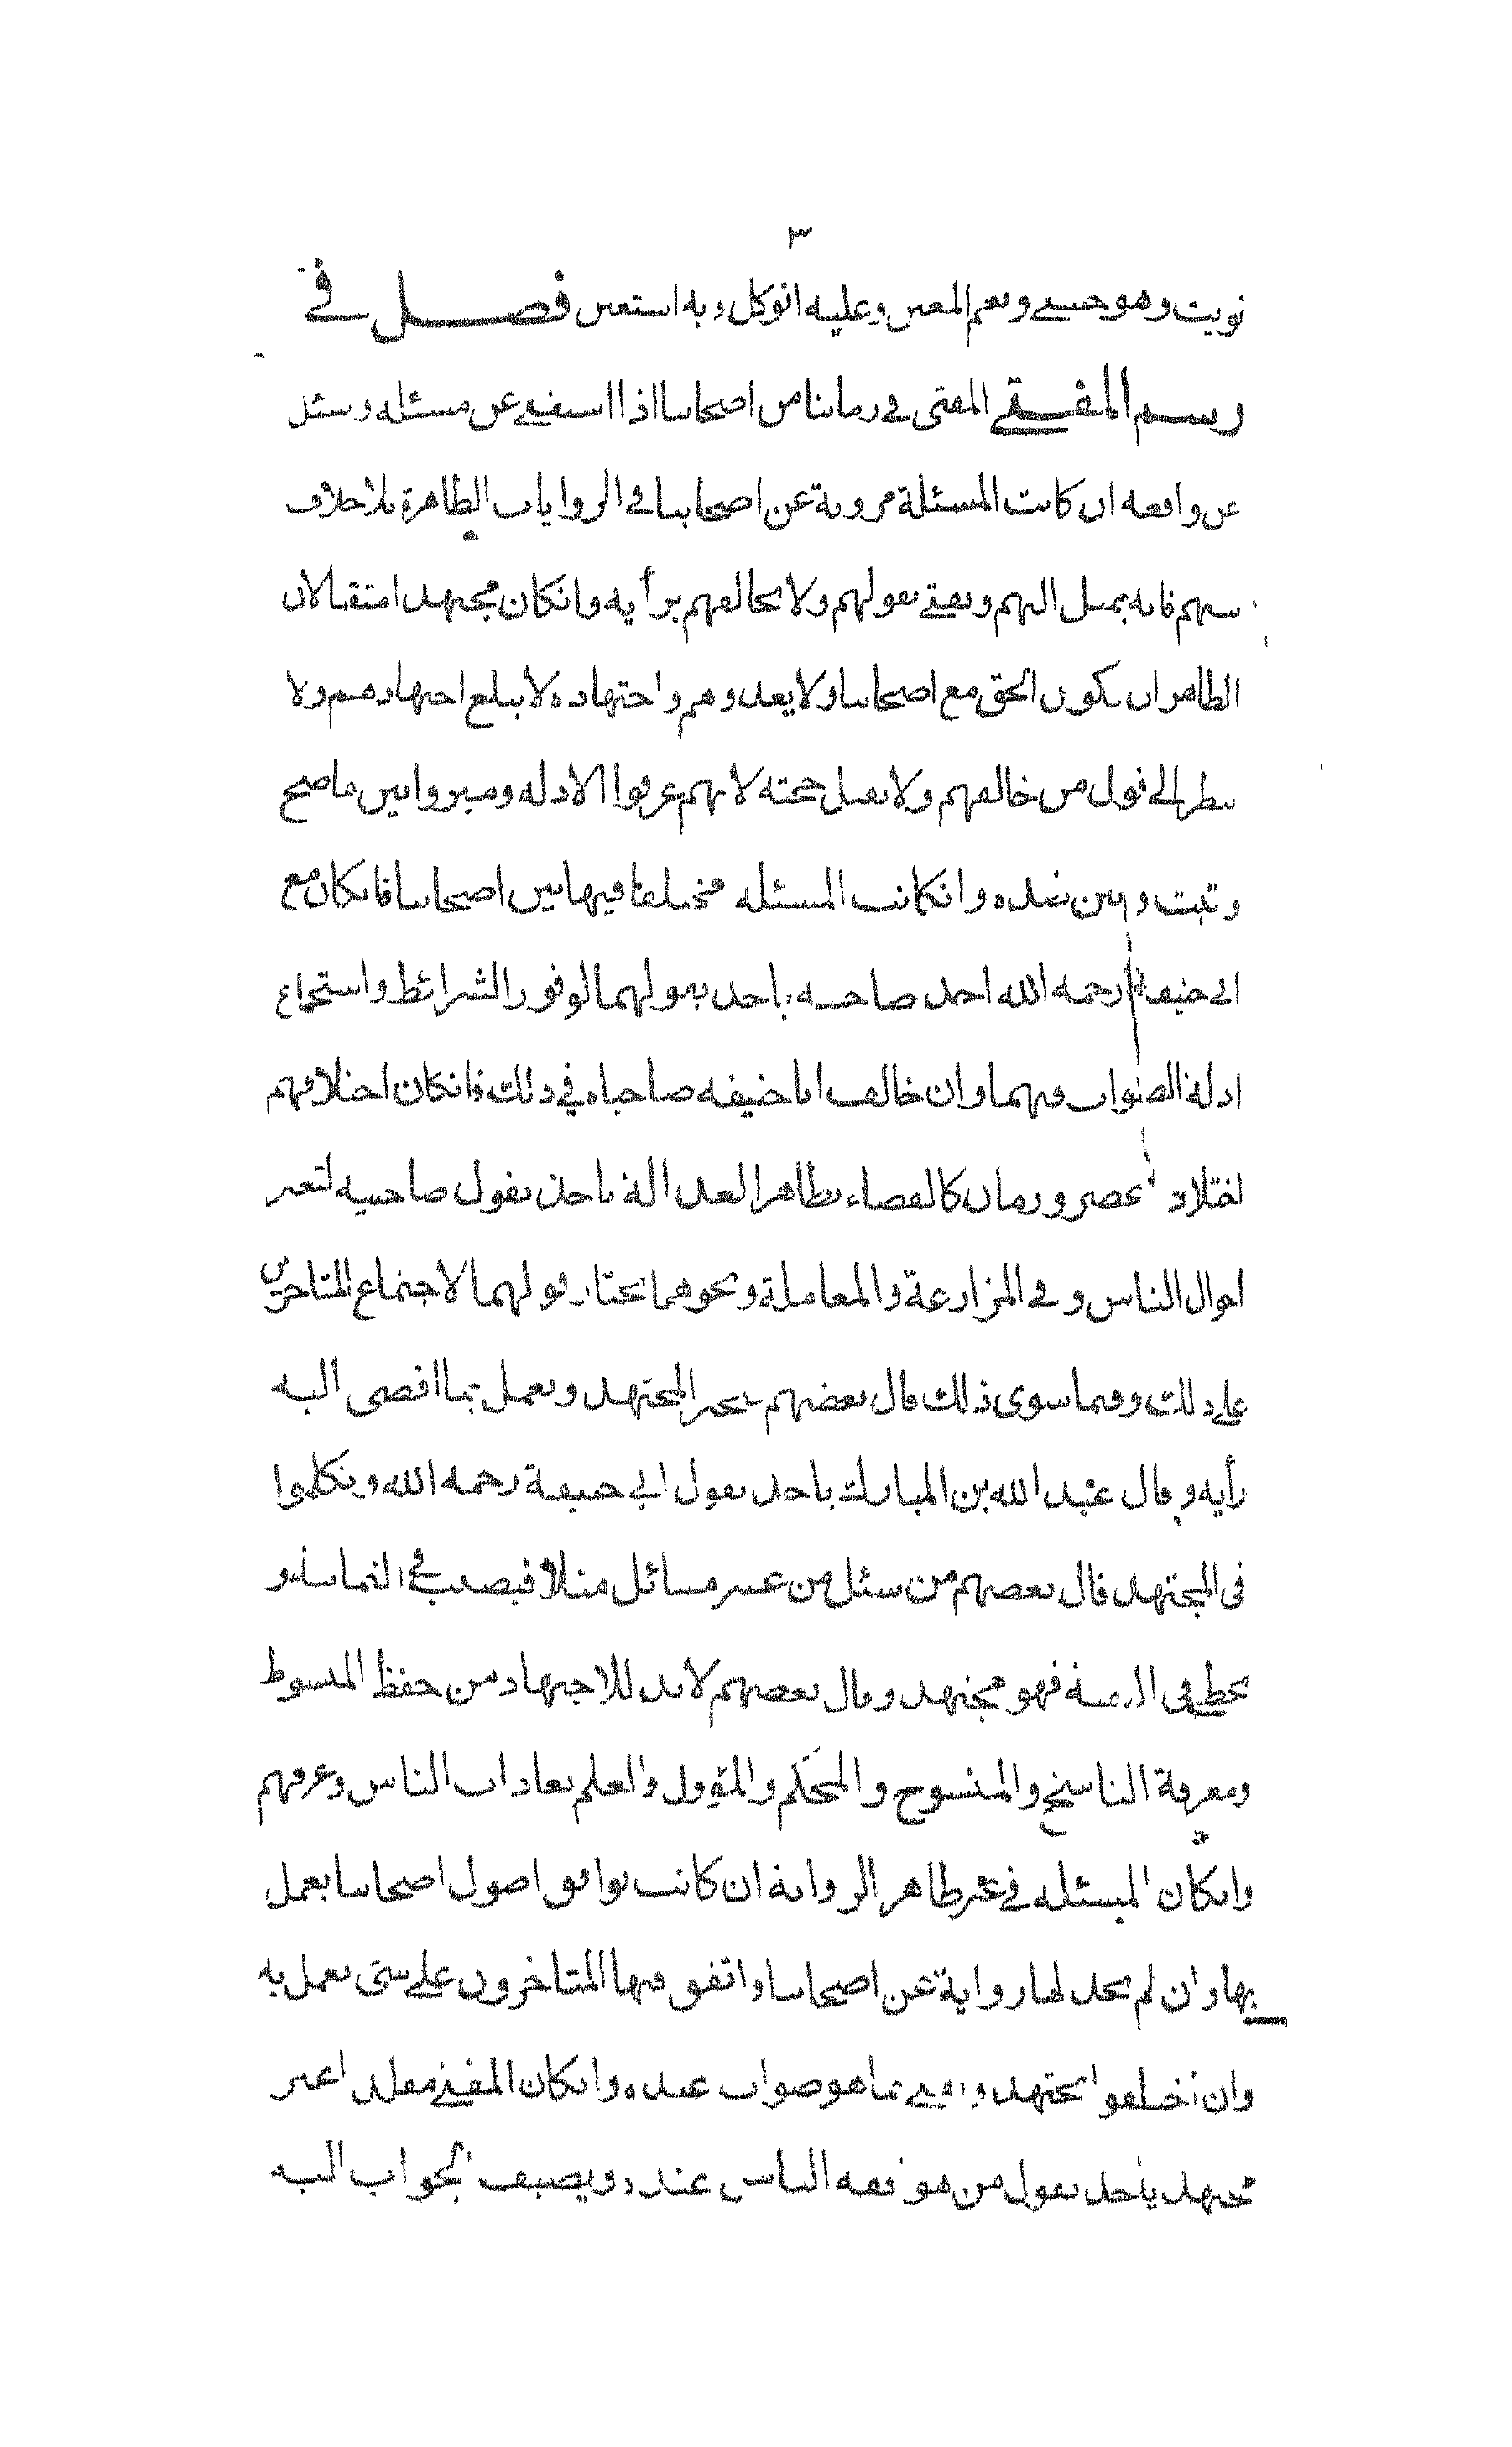 ٣
نويت وهو حسبى ونعم المعين وعليه اتوكل وبه استعين فصل في
رسم المفتي المفتى في زماننا من اصحابنا اذا استفتى عن مسئله وسئل
عن واقعه ان كانت المسئلة مروية عن اصحابنا في الروايات الظاهرة بلا خلاف
بينهم فانه يميل اليهم ويفتي بقولهم ولا يخالفهم برأيه وانكان مجتهدا متقنا لان
الظاهر ان يكون الحق مع اصحابنا ولا يعدوهم واجتهاده لا يبلغ اجتهادهم ولا
ينظر الى قول من خالفهم ولا يقبل حجته لانهم عرفوا الادله وميزوا بين ما صح
وثبت وبين ضده وانكانت المسئله مختلفا فيها بين اصحابنا فانكان مع
ابي حنيفة رحمه الله احد صاحبيه ياخد بقولهما لوفور الشرائط واستجماع
ادلة الصواب فيهما وان خالف ابا حنيفه صاحباه في ذلك فانكان اختلافهم
اختلاف عصر وزمان كالقضاء بظاهر العدالة ياخذ بقول صاحبيه لتغير
احوال الناس وفي المزارعة والمعاملة ونحوهما يختار قولهما لاجتماع المتاخرين
على ذلك وفيما سوى ذلك قال بعضهم يتخير المجتهد ويعمل بما افضى اليه
رأيه وقال عبد الله بن المبارك ياخد بقول ابي حنيفة رحمه الله وتكلموا
في المجتهد قال بعضهم من سئل من عشر مسائل مثلا فيصيب في الثمانية و
يخطي في البقية فهو مجتهد وقال بعضهم لا بد للاجتهاد من حفظ المبسوط
ومعرفة الناسخ والمنسوخ والمحكم والمؤول والعلم بعادات الناس وعرفهم
وانكان المسئله في غير ظاهر الرواية ان كانت توافق اصول اصحابنا يعمل
بها وان لم يجد لها رواية عن اصحابنا واتفق فيها المتاخرون على شئ يعمل به
وان اختلفوا يجتهد ويفتي بما هو صواب عنده وانكان المفتي مقلد اغير
مجتهد ياخد بقول من هو افقه الناس عنده ويضيف الجواب اليه